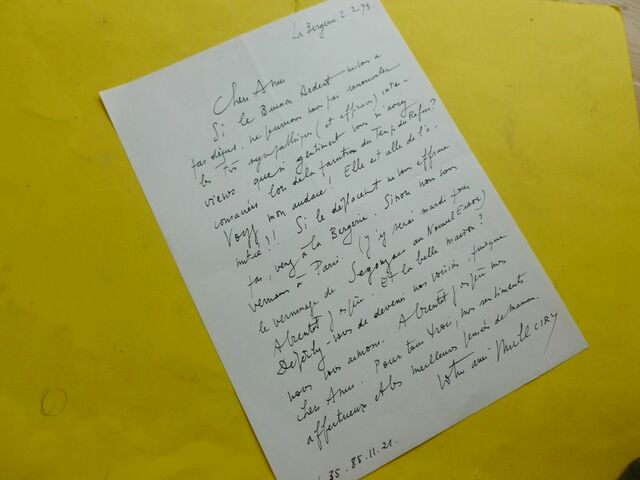 La Bergerie 2.2.73.
Chers Amis
Si le Buisson Ardent ne vous a
pas déçus, ne pourrions nous pas renouveler
les très sympathiques (et efficaces) inter-
views que si gentiment vous m'avez
consacrées lors de la parution du Temps du Refus?
Voyez mon audace! Elle est celle de l'a-
mitié!! Si le déplacement ne vous effraie
pas, venez à la Bergerie. Sinon nous nous
verrons à Paris. (j'y serai mardi pour
le vernissage de Segonzac au Nouvel Essor)
A bientôt j'espère. Et la belle maison?
Dépêchez-vous de devenir nos voisins, puisque
nous vous aimons. A bientôt j'espère mes
chers Amis. Pour tous trois, mes sentiments
affectueux et les meilleures pensées de maman.
Votre ami CIRY
35.85.11.21.